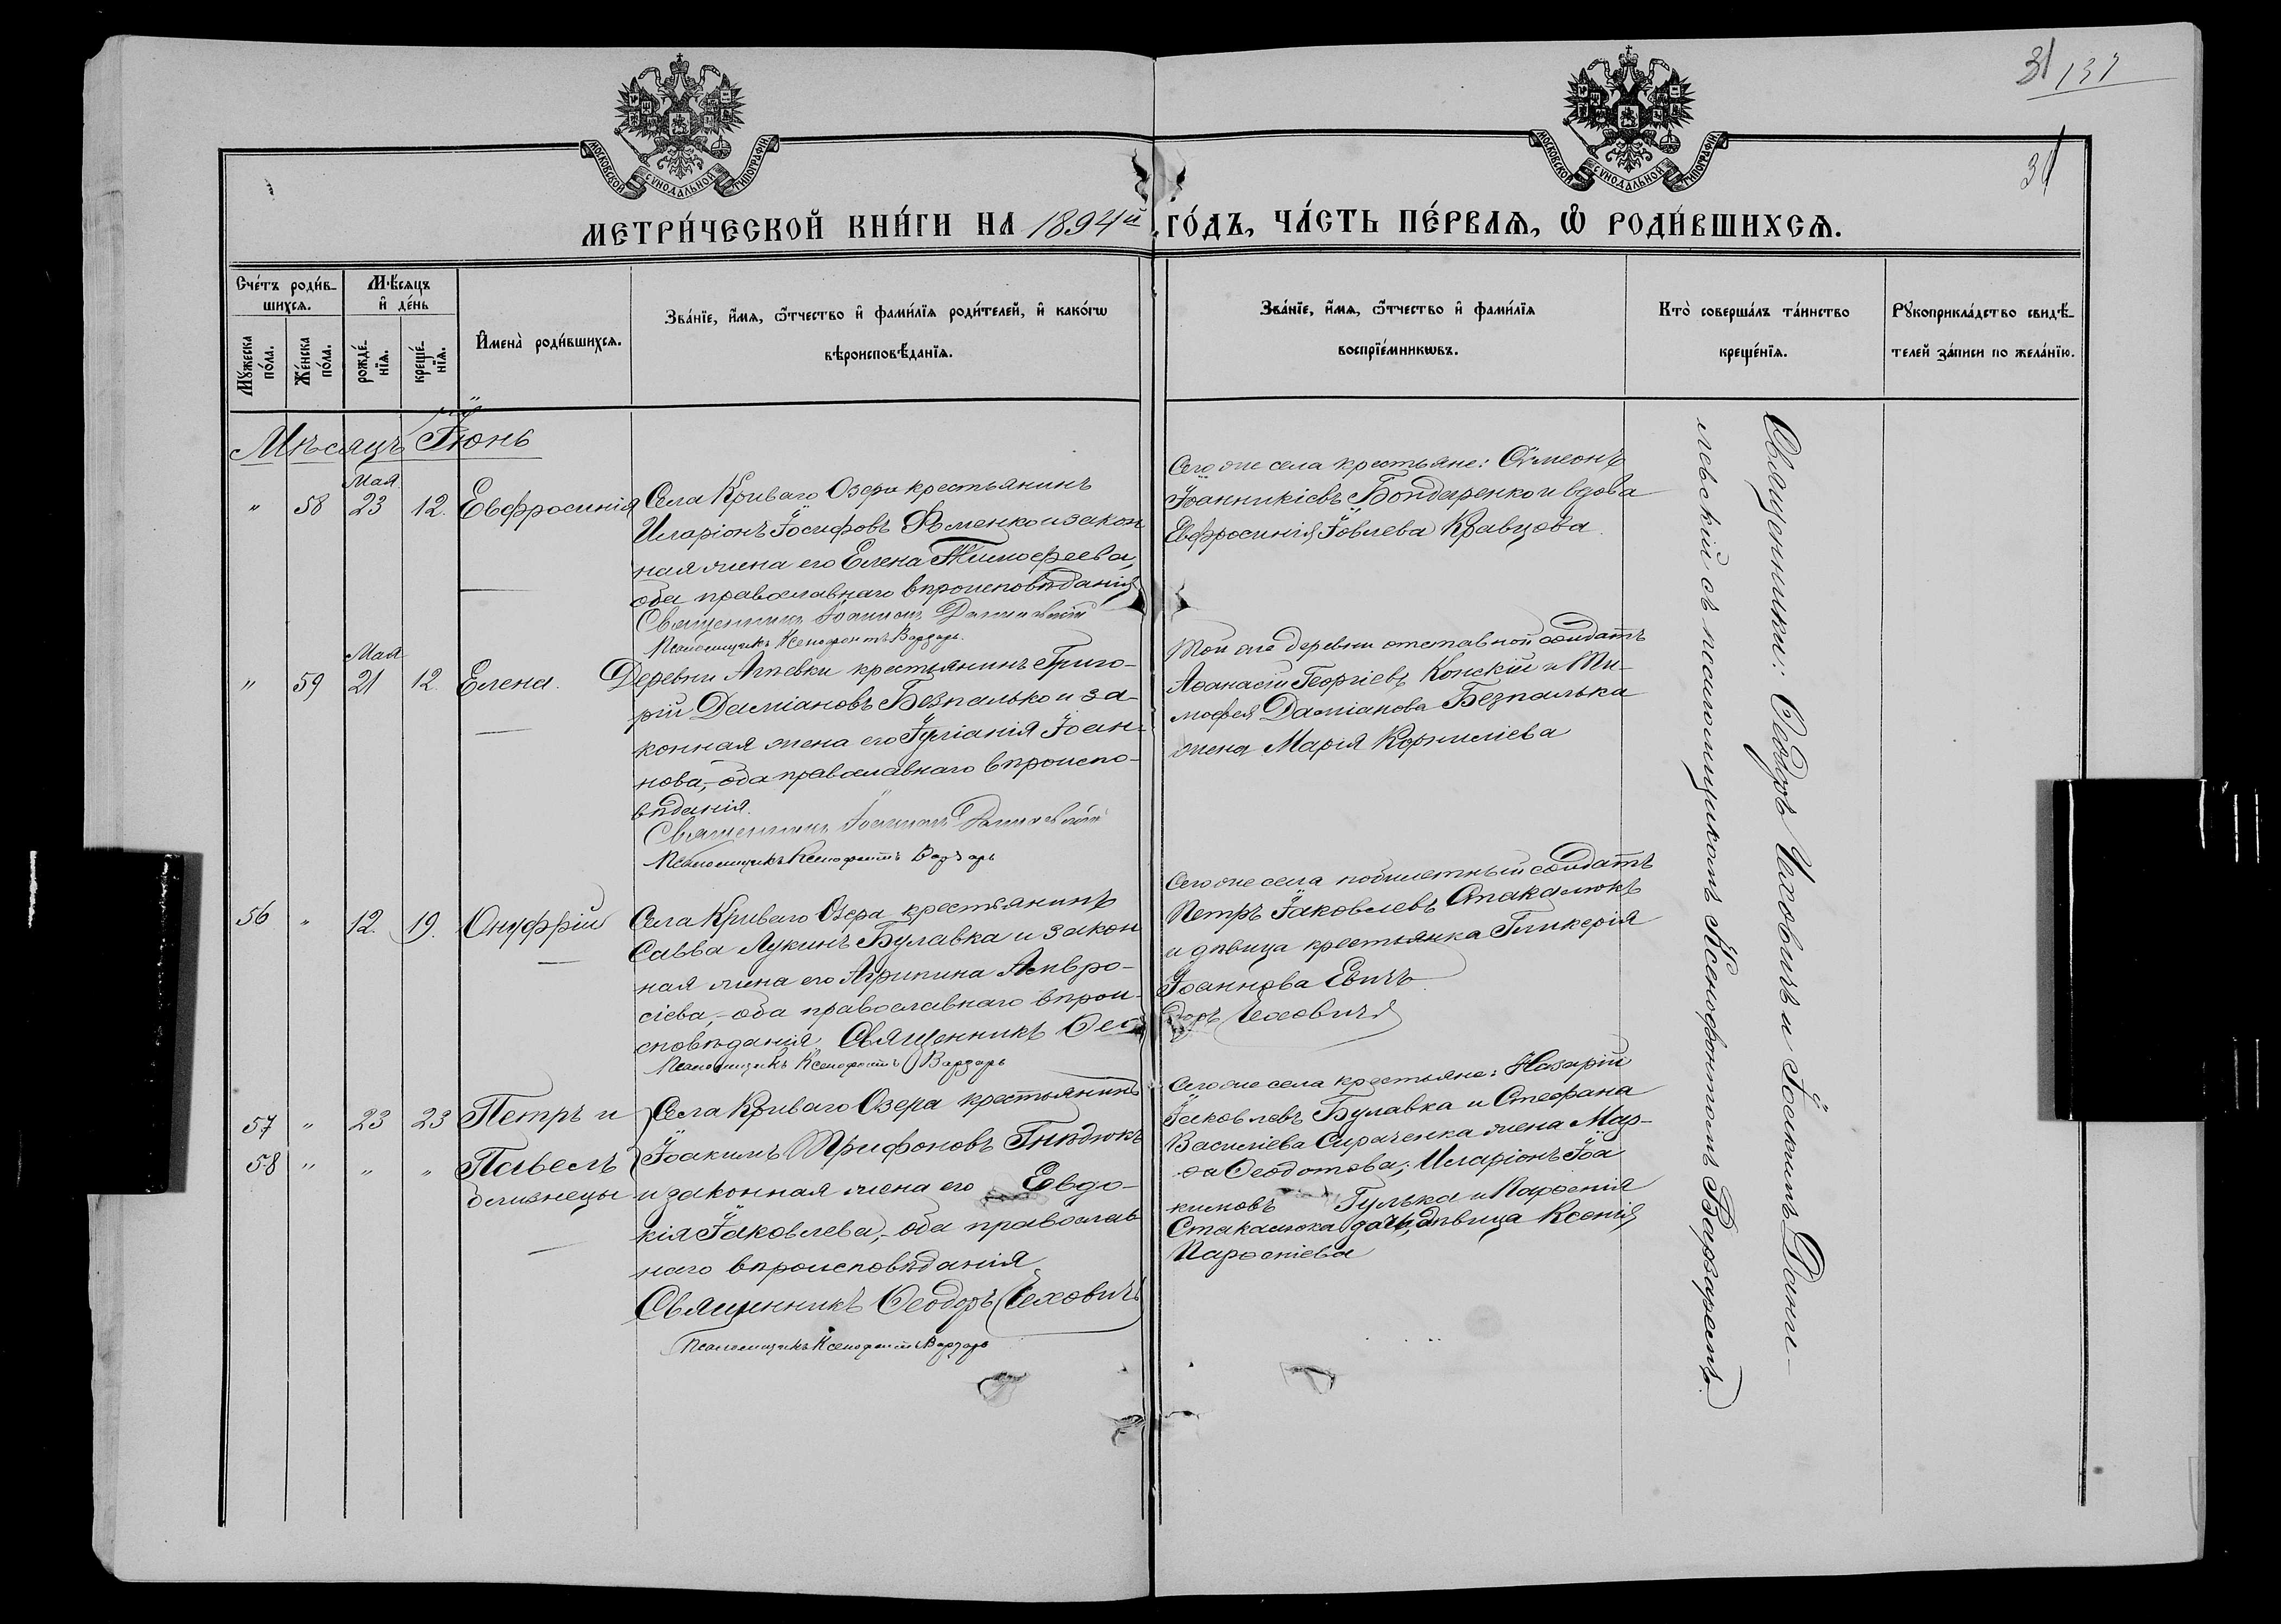 31 137
31
МОСКОВСКОЙ СѴНОДАЛЬНОЙ ТИПОГРАФІИ
МОСКОВСКОЙ СѴНОДАЛЬНОЙ ТИПОГРАФІИ
МЕТРИ́ЧЕСКОЙ КНИ́ГИ НА 1894й ГО́ДЪ, ЧА́СТЬ ПЕ́РВАѦ, Ѡ҆ РОДИ́ВШИХСѦ.
Сче́тъ роди́в-
шихсѧ.
Мꙋжеска по́ла.
Же́нска по́ла.
Мѣ́сѧцъ
и҆ де́нь
рожде́-нїѧ.
креще́-нїѧ.
И҆мена̀ роди́вшихсѧ.
Зва́нїе, и҆́мѧ, ѻ҆́тчество и҆ фами́лїѧ роди́телей, и҆ како́гѡ
вѣроисповѣ́данїѧ.
Зва́нїе, и҆́мѧ, ѻ҆́тчество и҆ фами́лїѧ
воспрїе́мникѡвъ.
Кто̀ соверша́лъ та́инство
креще́нїѧ.
Рꙋкоприкла́дство свидѣ́-
телей за́писи по жела́нїю.
Мѣсяцъ Іюнь
Мая
" 58 23 12. Евфросинія
Села Криваго Озера крестьянинъ
Иларіонъ Іосифовъ Фоменко и закон
ная жена его Елена Тимофеева,
оба православнаго вѣроисповѣданія
Священникъ Іоакимъ Данилевскій
Псаломщикъ Ксенофонтъ Варзарь.
Сего же села крестьяне: Сѵмеонъ
Іоанникіевъ Бондаренко и вдова
Евфросинія Іовлева Кравцова.
Мая
" 59 21 12. Елена.
Деревни крестьянинъ Григо-
рій Даміановъ Безпалько и за-
конная жена его Іуліанія Іоан-
нова, оба православнаго вѣроиспо-
вѣданія.
Священникъ Іоакимъ Данилевскій
Псаломщикъ Ксенофонтъ Варзарь
Той же деревни отставной солдатъ
Аѳанасій Георгіевъ Конскій и Ти-
мофея Даміанова Безпалька
жена Марія Корниліева
56 " 12. 19. Онуфрій
Села Криваго Озера крестьянинъ
Савва Лукинъ Булавка и закон
ная жена его Агрипина Амвро-
сіева, оба православнаго вѣрои-
сповѣданія. Священникъ Ѳео
доръ Чеховичъ
Псаломщикъ Ксенофонтъ Варзарь
Сего же села побилетный солдатъ
Петръ Іаковлевъ Стакалюкъ
и дѣвица крестьянка Гликерія
Іоаннова
57 " 23 23 Петръ и
58 " " " Павелъ
близнецы
Села Криваго Озера крестьянинъ
Іоакимъ Трифоновъ Гнидюкъ
и законная жена его Евдо-
кія Іаковлева, оба православ
наго вѣроисповѣданія
Священникъ Ѳеодоръ Чеховичъ
Псаломщикъ Ксенофонтъ Варзарь
Сего же села крестьяне: Назарій
Іаковлевъ Булавка и Стефана
Василіева Сираченка жена Мар-
ѳа Ѳеодотова; Иларіонъ Іоа
кимовъ Гулька и Парѳенія
Стакалюка дочь, дѣвица Ксенія
Парѳеніева
Священники: Ѳеодоръ Чеховичъ и Іоакимъ Дани-
левскій съ псаломщикомъ Ксенофонтомъ Варзаремъ.